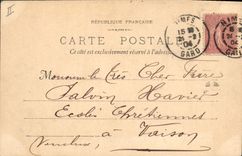 II
RÉPUBLIQUE FRANÇAISE
CARTE POSTALE
Ce côté est exclusivement réservé à l'adresse
NIMES
GARD
NIMES
GARD
Monsieur le Très Cher Frère
Salvin Xavier
Ecoles Chrétiennes
à Vaison
Vaucluse